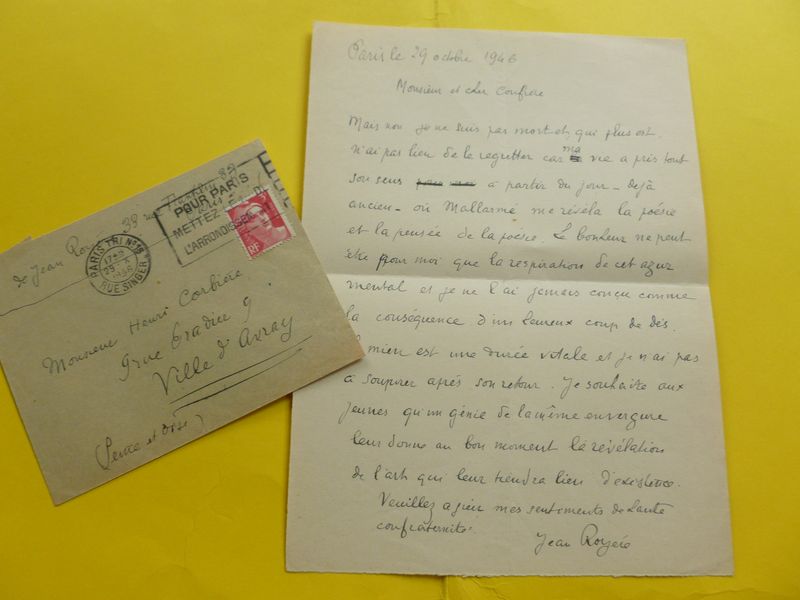 Paris le 29 octobre 1946
Monsieur et cher Confrère
Mais non je ne suis pas mort et, qui plus est
n'ai pas lieu de le regretter car ma vie a près tout
son sens à partir du jour - déjà
ancien - où Mallarmé me révéla la poésie
et la pensée de la poésie. Le bonheur ne peut
être pour moi que la respiration de cet azur
mental et je ne l'ai jamais conçu comme
la conséquence d'un heureux coup de dés.
Le mien est une durée vitale et je n'ai pas
à soupirer après son retour. Je souhaite aux
jeunes qu'un génie de la même envergure
leur donne au bon moment la révélation
de l'art qui leur tiendra lieu d'existence.
Veuillez agréer mes sentiments de haute
confraternité.
Jean Royère
de Jean Roy 33 rue
POUR PARIS
METTEZ
L'ARRONDISSEM
PARIS TRI No
RUE SINGER
RF
Monsieur Henri Corbière
9 rue Gradier 9
Ville d'Avray
(Seine et Oise)